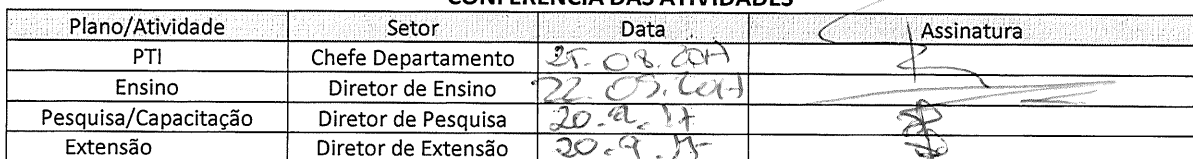 CONFERÊNCIA DAS ATIVIDADES
Plano/Atividade Setor Data Assinatura
PTI Chefe Departamento 25.08.2017
Ensino Diretor de Ensino 22.09.2017
Pesquisa/Capacitação Diretor de Pesquisa 20.9.17
Extensão Diretor de Extensão 20.9.17